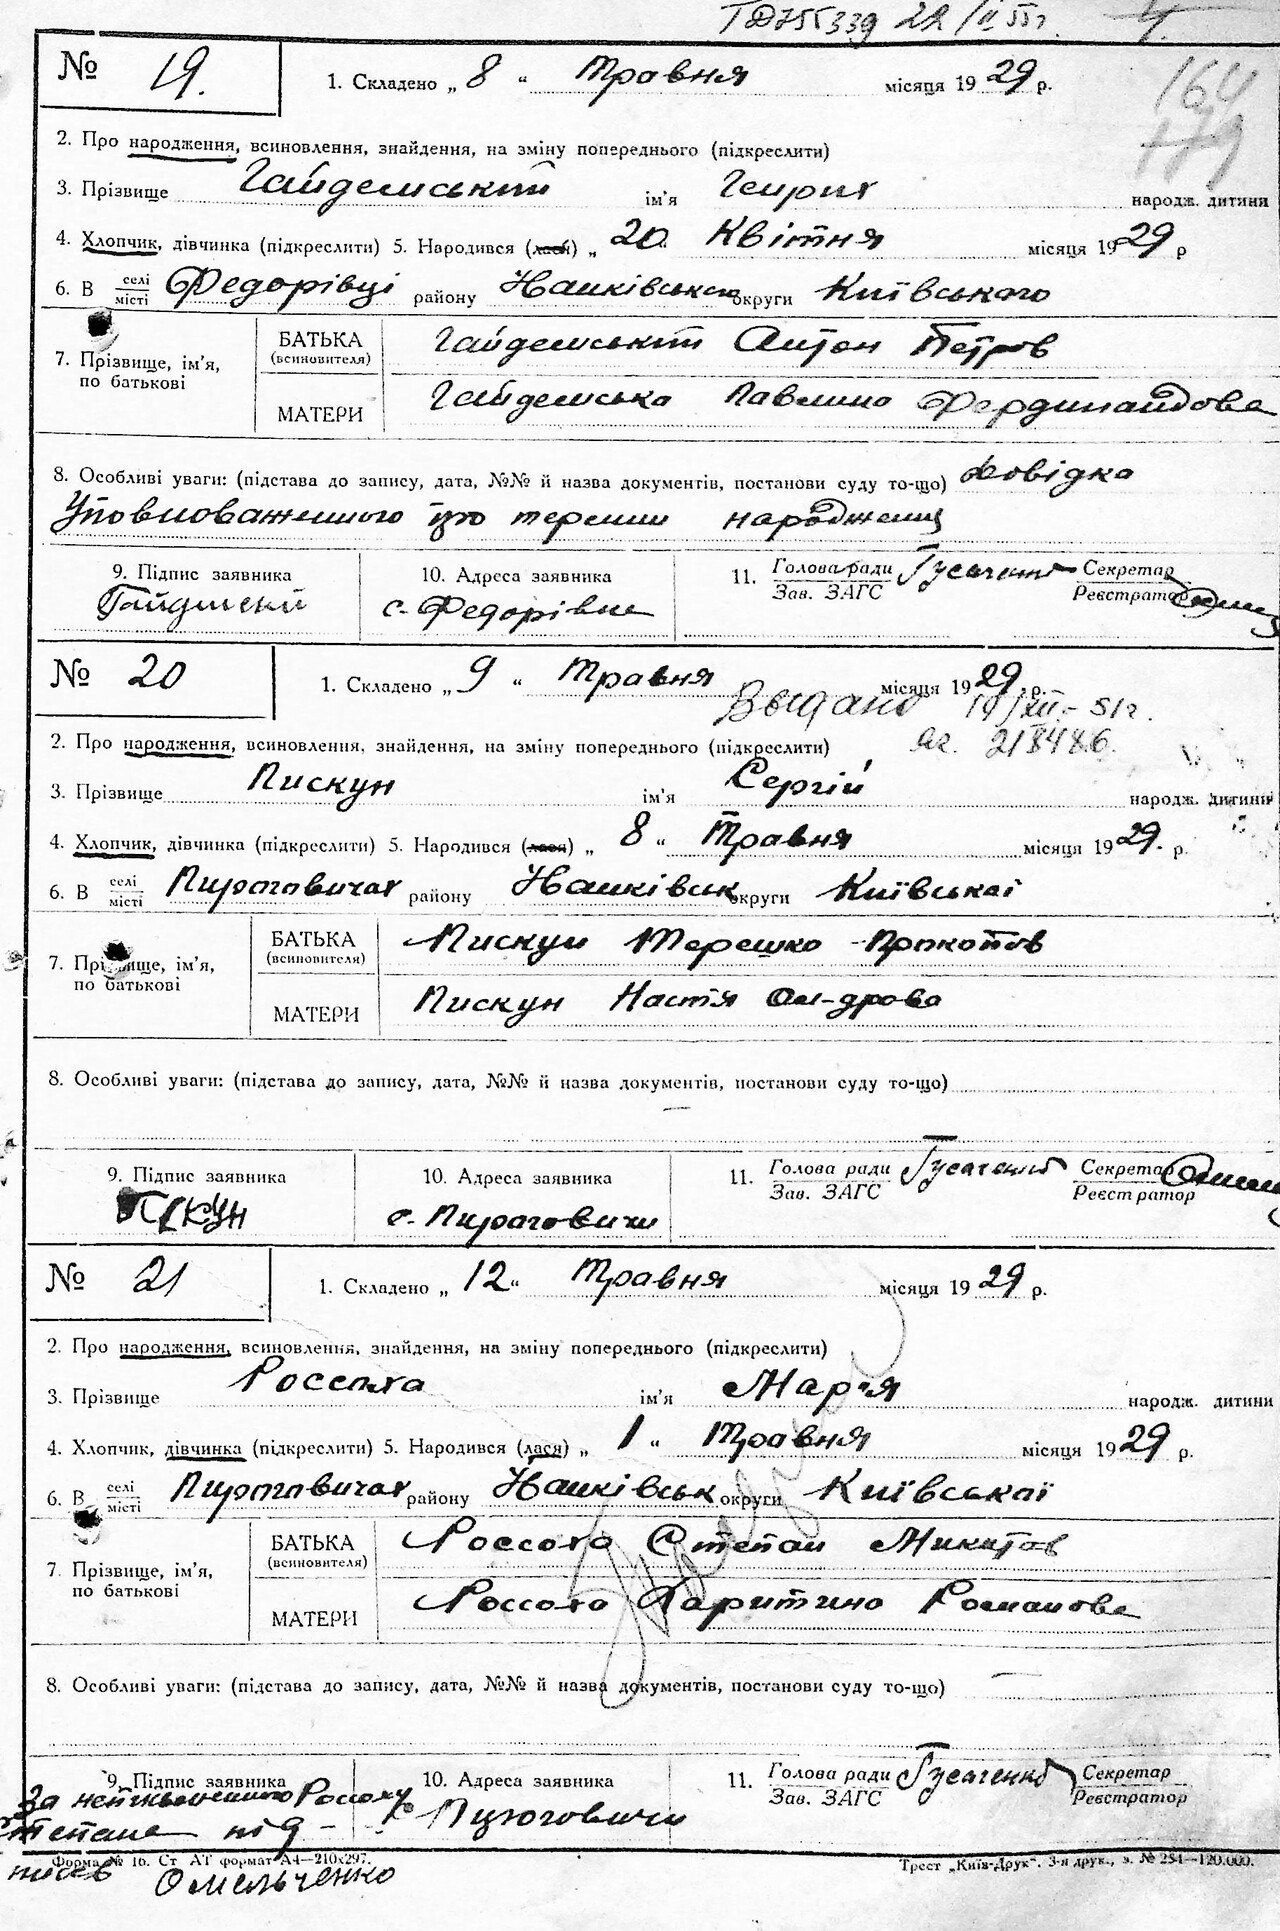 22/II 55 г. 4.
№ 19. 1. Складено „ 8 “ Травня місяця 1929 р.
164
179
2. Про народження, всиновлення, знайдення, на зміну попереднього (підкреслити)
3. Прізвище Гайдемський ім'я Генрих народж. дитини
4. Хлопчик, дівчинка (підкреслити) 5. Народився (лася) „ 20 Квітня місяця 1929 р
6. В селі/місті Федорівці району Наиківськ округи Київського
7. Прізвище, ім'я, по батькові
БАТЬКА (всиновителя) Гайдемський Антон Петров
МАТЕРИ Гайдемська Павлина Фердинандова
8. Особливі уваги: (підстава до запису, дата, №№ й назва документів, постанови суду то-що) Довідка
Уповноваженного про термин народження
9. Підпис заявника 10. Адреса заявника 11. Голова ради Гусаченко Секретар
Зав. ЗАГС Реєстратор
с. Федорівка
№ 20 1. Складено „ 9 “ Травня місяця 1929 р.
Выдано 19/XII - 51 г.
218486
2. Про народження, всиновлення, знайдення, на зміну попереднього (підкреслити)
3. Прізвище Пискун ім'я Сергій народж. дитини
4. Хлопчик, дівчинка (підкреслити) 5. Народився (лася) „ 8 “ Травня місяця 1929. р.
6. В селі/місті Пироговичах району Наиківськ округи Київської
7. Прізвище, ім'я, по батькові
БАТЬКА (всиновителя) Пискун Терешко Прокопов
МАТЕРИ Пискун Настя Ол-дрова
8. Особливі уваги: (підстава до запису, дата, №№ й назва документів, постанови суду то-що)
—
9. Підпис заявника 10. Адреса заявника 11. Голова ради Гусаченко Секретар
Зав. ЗАГС Реєстратор
с. Пироговичи
№ 21 1. Складено „ 12 “ Травня місяця 1929 р.
2. Про народження, всиновлення, знайдення, на зміну попереднього (підкреслити)
3. Прізвище Россоха ім'я Марія народж. дитини
4. Хлопчик, дівчинка (підкреслити) 5. Народився (лася) „ 1 “ Травня місяця 1929 р.
6. В селі/місті Пироговичах району Наиківськ округи Київської
7. Прізвище, ім'я, по батькові
БАТЬКА (всиновителя) Россоха Степан Микитов
МАТЕРИ Россоха Харитина Романова
8. Особливі уваги: (підстава до запису, дата, №№ й назва документів, постанови суду то-що)
9. Підпис заявника 10. Адреса заявника 11. Голова ради Гусаченко Секретар
Зав. ЗАГС Реєстратор
За неписьменного Россоху
Степана під-
писав Омельченко
с. Пироговичи
Форма № 16. Ст АТ формат А4—210х297.
Трест „Київ-Друк“. 3-я друк., з. № 251—120.000.